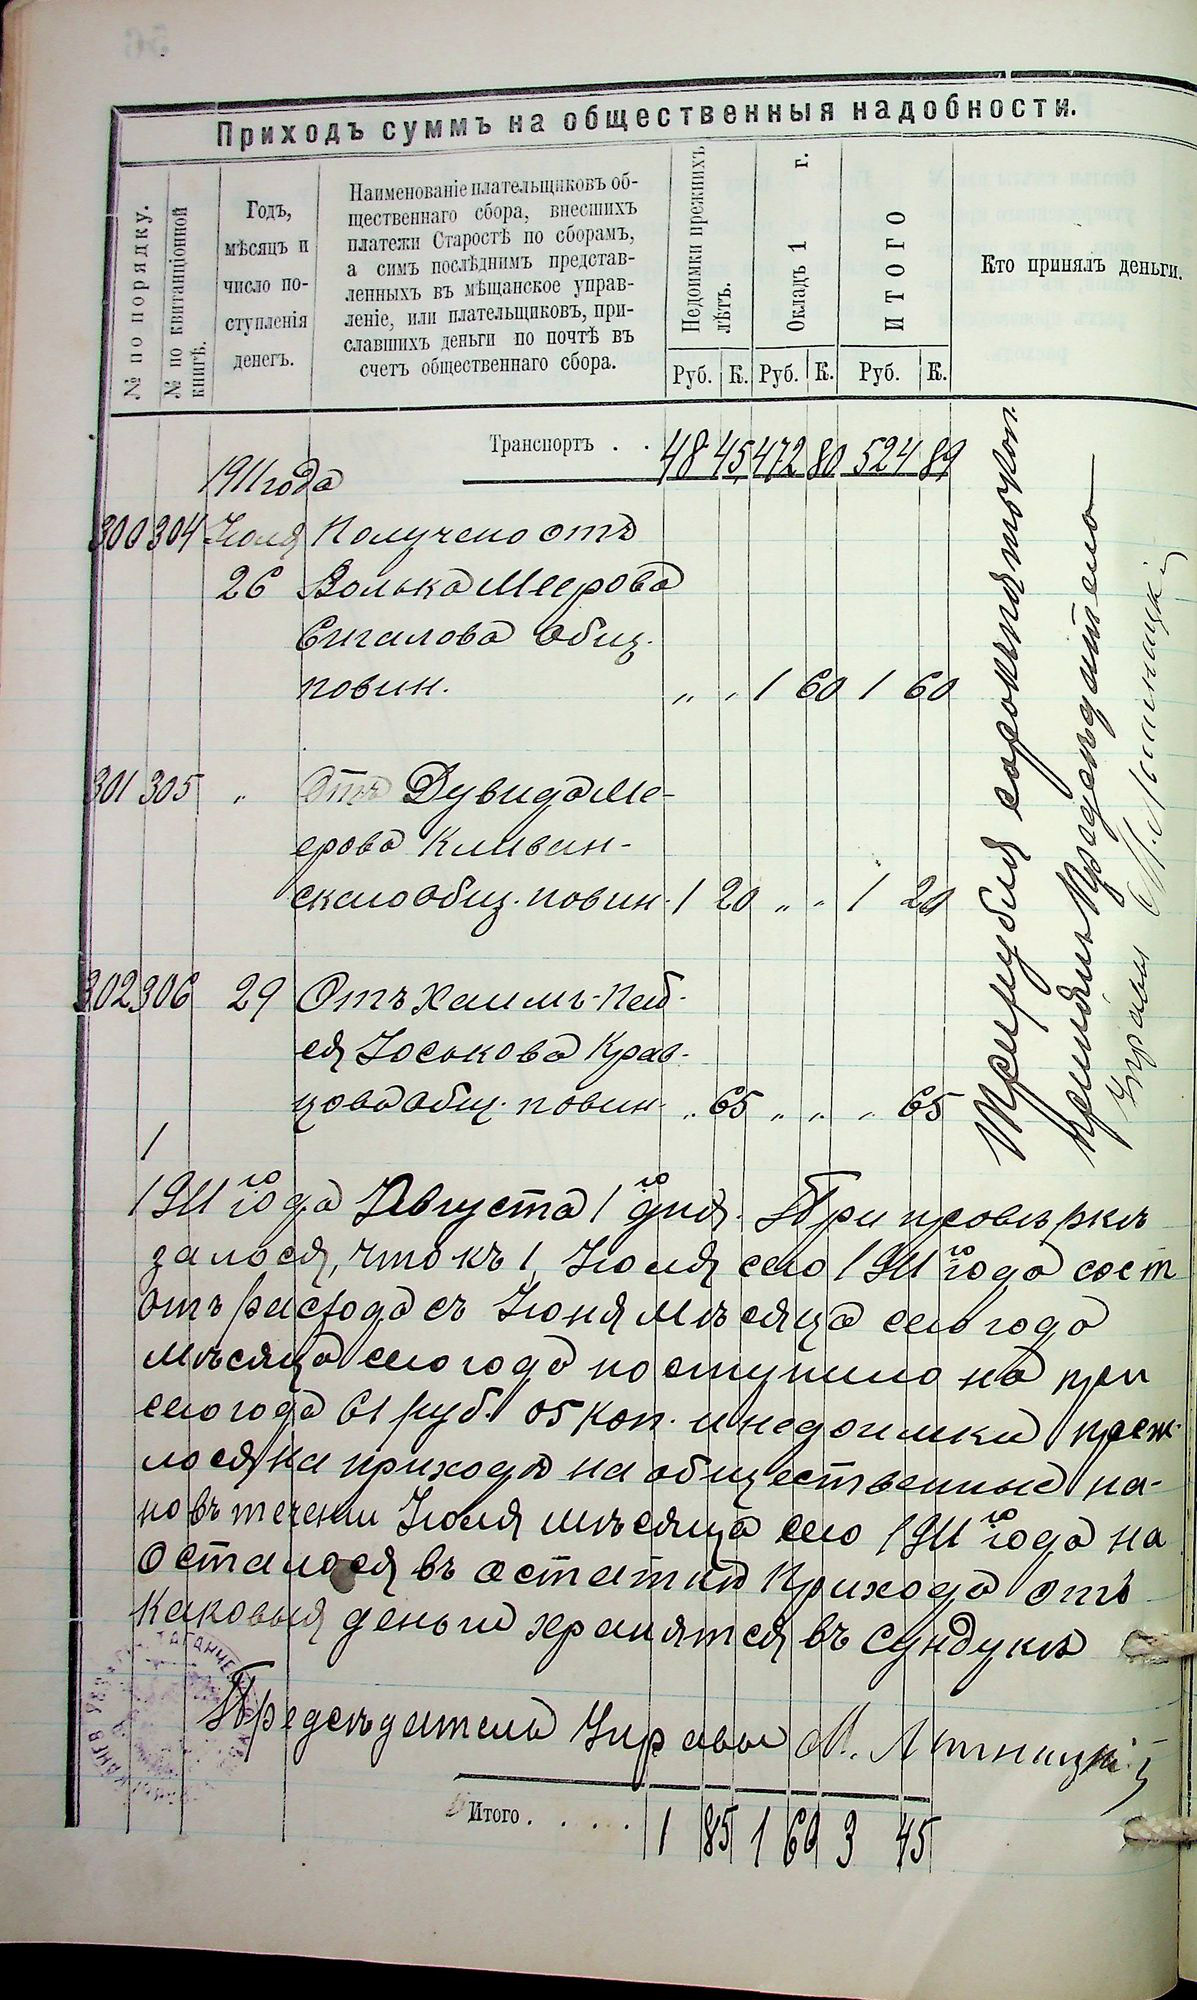 Приходъ суммъ на общественныя надобности.
№ по порядку.
№ по квитанціонной
книгѣ.
Годъ,
мѣсяцъ и
число по-
ступленія
денегъ.
Наименованіе плательщиковъ об-
щественнаго сбора, внесшихъ
платежи Старостѣ по сборамъ,
а симъ послѣднимъ представ-
ленныхъ въ мѣщанское управ-
леніе, или плательщиковъ, при-
славшихъ деньги по почтѣ въ
счетъ общественнаго сбора.
Недоимки прежнихъ
лѣтъ.
Окладъ 1 г.
ИТОГО
Кто принялъ деньги.
Руб. К. Руб. К. Руб. К.
Транспортъ . . 48 45 472 80 524 89
1911 года
300 304 Іюля Получено отъ
26 Волька Меерова
Сигалова общ.
повин. „ „ 1 60 1 60
301 305 „ Отъ Дувида Ме-
ерова Клибан-
скаго общ. повин. 1 20 „ „ 1 20
302 306 29 Отъ Хаимъ-Пей-
ся Іоськова Крав-
цова общ. повин. „ 65 „ „ „ 65
Три рубля сорокъ пять коп.
принялъ Предсѣдатель
Управы М. Литницкій
1911 го года Августа 1 го дня. При провѣркѣ
залося, что къ 1 Іюля сего 1911 го года сост
отъ расхода съ Іюня мѣсяца сего года
мѣсяца сего года поступило на при
сего года 61 руб. 05 коп. и недоимки преж-
лося на приходѣ на общественные на-
но въ теченіи Іюля мѣсяца сего 1911 го года на
Осталося въ остатки Прихода отъ
Каковыя деньги хранятся въ сундукѣ
Предсѣдатель Управы М. Литницкій
Итого . . . . . 1 85 1 60 3 45